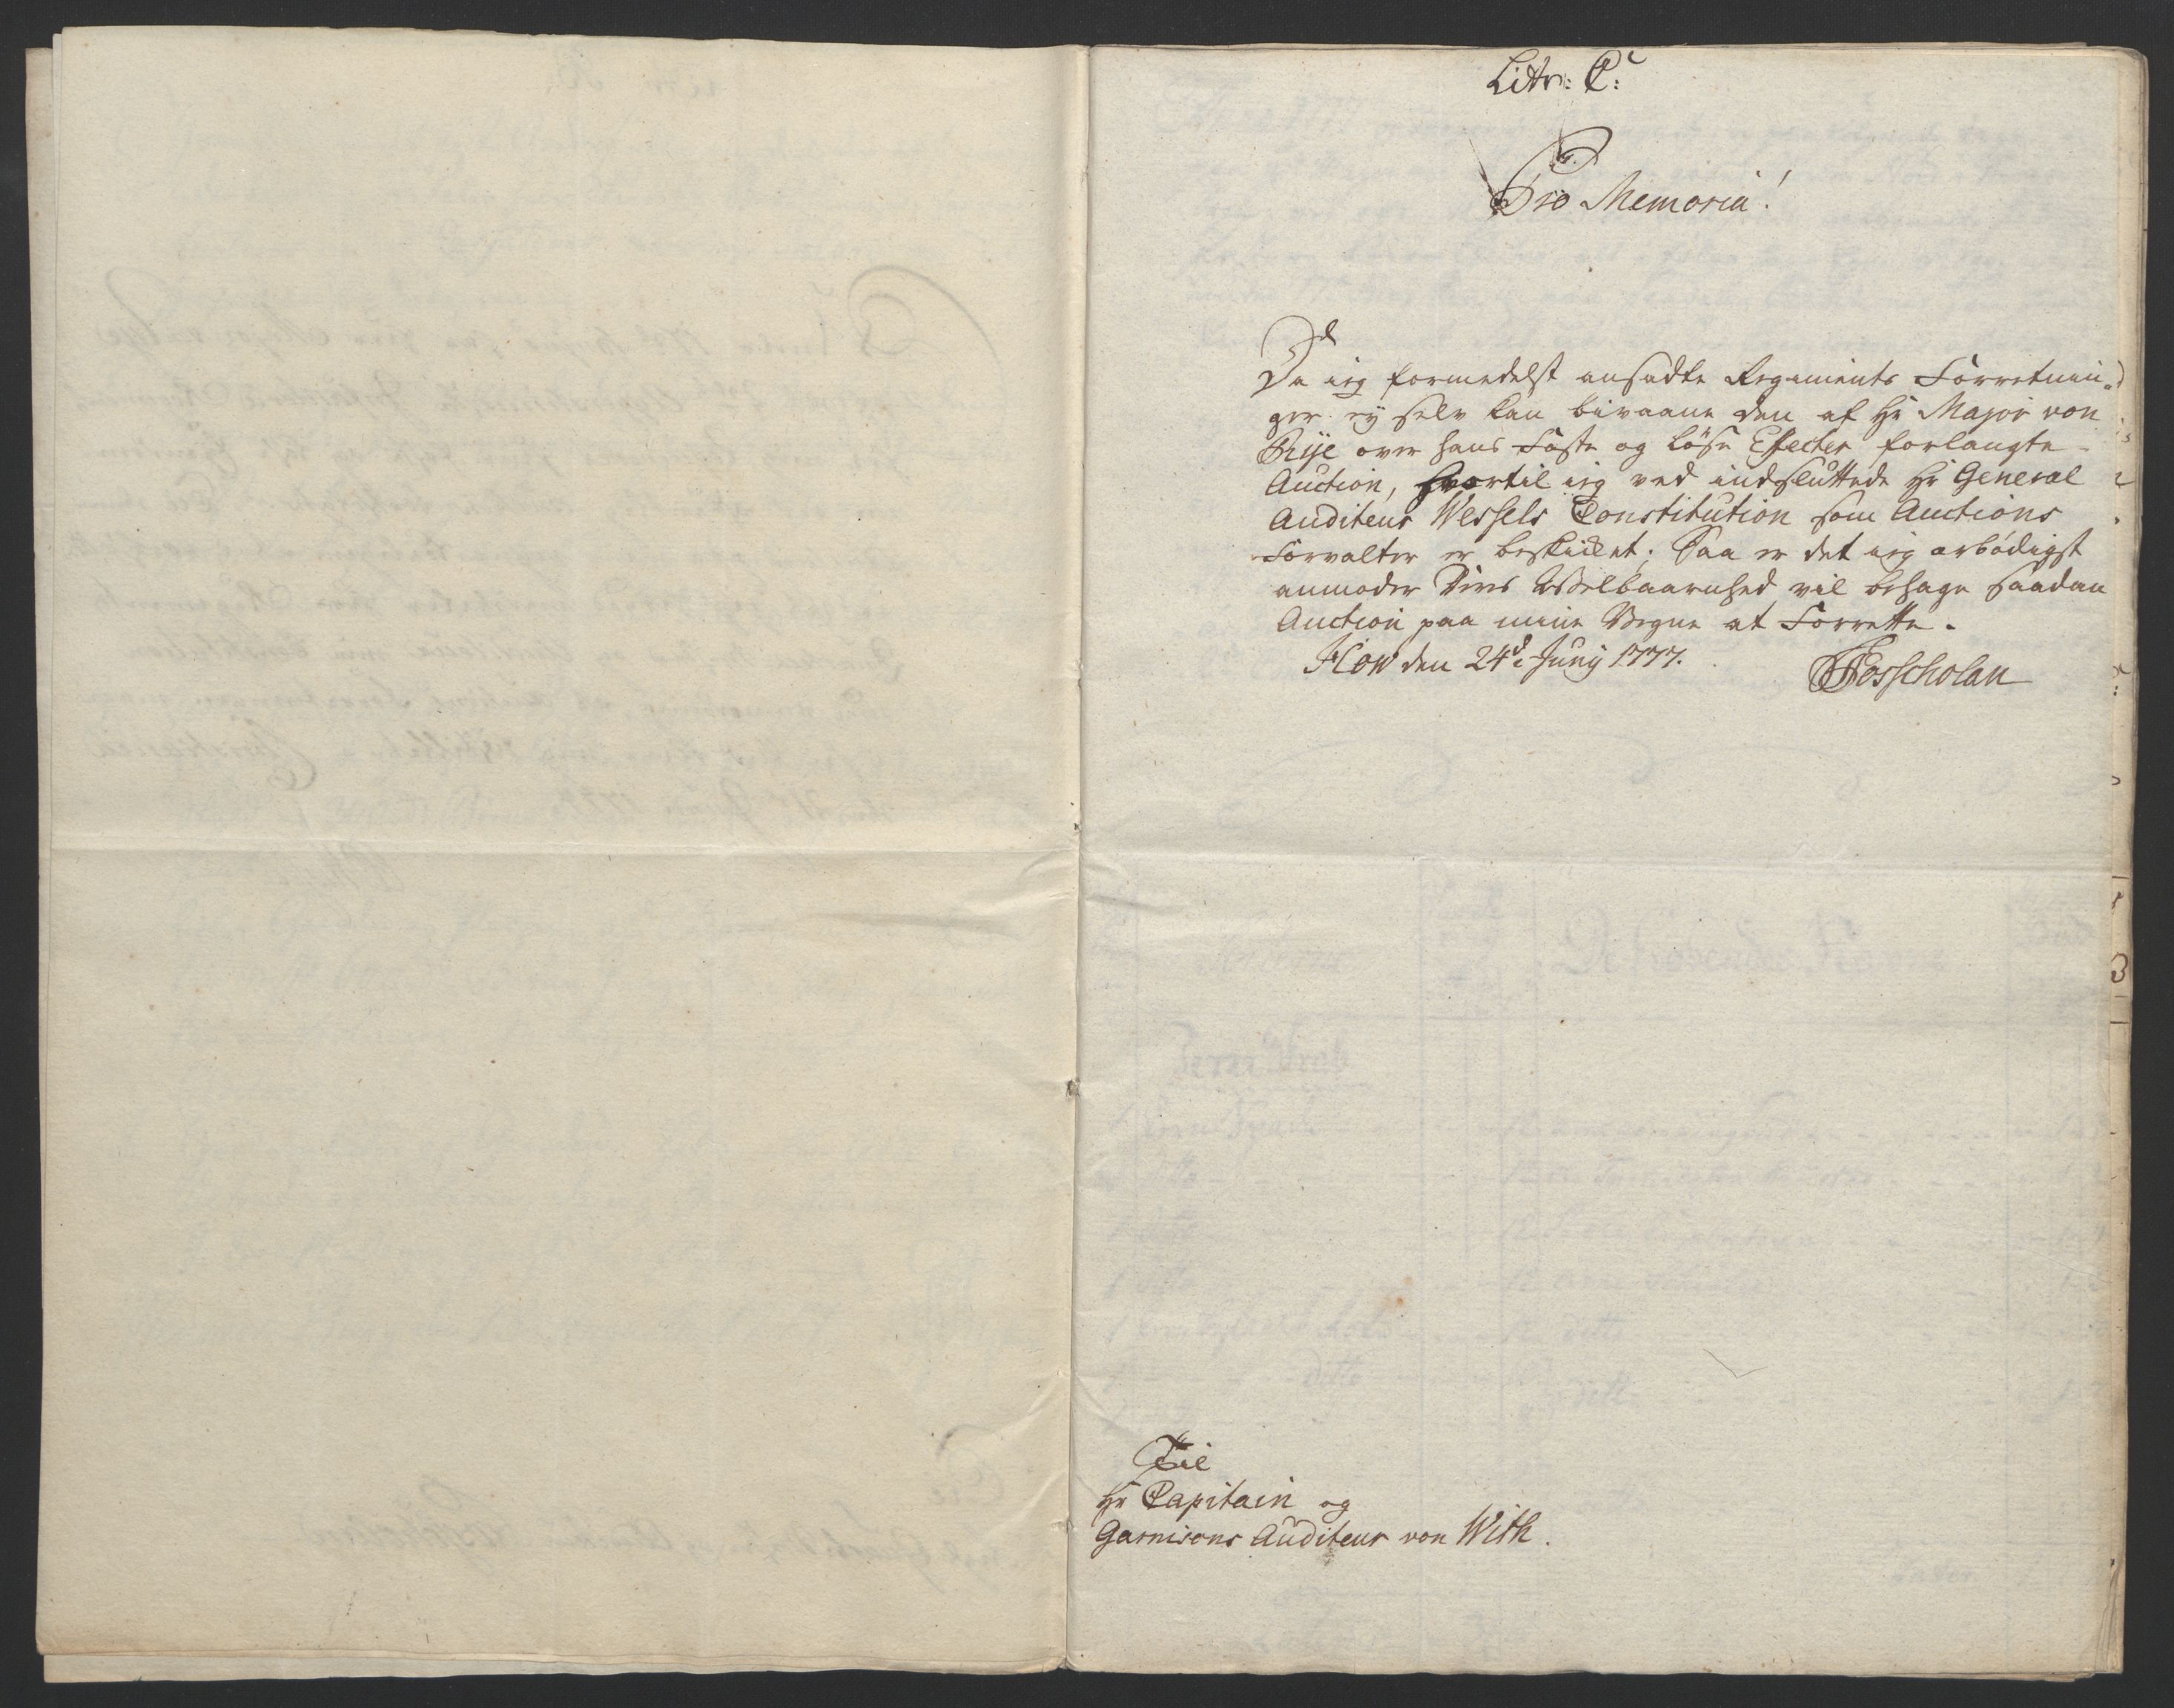 Littr: C:
Pro Memoria!
Da ieg formedelst ansadte Regiments Forretnin-
ger ey selv kan bivaane den af Hr Major von
Rije over hans Faste og Löse Effecter forlangte
Auction, hvortil ieg ved indsluttede Hr General
Auditeur Wessels Constitution som Auctions
Forvalter er beskicket; Saa er det ieg ærbödigst
anmoder Deres Velbaarenhed vil behage saadan
Auction paa mine Vegne at Forrette.
den 24de Junij 1777.
Til
Hr Capitain og
Garnisons Auditeur von With.